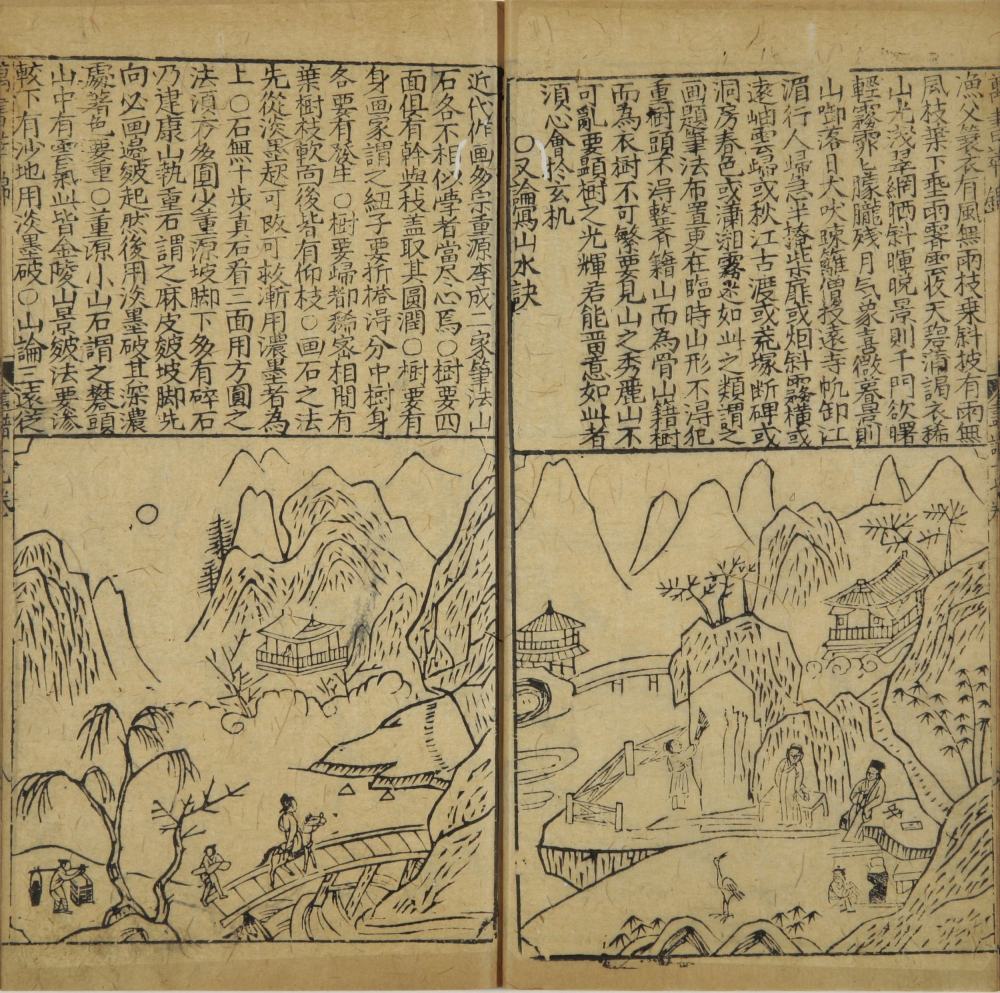 漁父簑衣有風無雨枝葉斜披有雨無
風枝葉下垂雨霽雲收天碧蒲謁衣稀
山光淺翠網晒斜暉晚景則千門欲曙
輕霧霏〻朦朧残月气象熹微暮景則
山啣落日犬吠疎籬僧投遠寺帆卸江
湄行人歸急半掩柴扉或烟斜霧橫或
遠岫雲歸或秋江古渡或荒塚断碑或
洞房春色或潇湘霧迷如此之類謂之
画題筆法布置更在臨時山形不得犯
重樹頭不得整齐籍山而為骨山籍樹
而為衣樹不可繁要見山之秀麗山不
可亂要顯樹之光輝若能畱意如此者
須心會於玄机
○又論寫山水訣
近代作画多宗董源李成二家筆法山
石各不相似學者當尽心焉○樹要四
面俱有幹與枝盖取其圓潤○樹要有
身画家謂之紐子要折搭得分中樹身
各要有發生○樹要歸都稀密相間有
葉樹枝軟而後皆有仰枝○画石之法
先從淡墨起可改可救漸用濃墨者為
上○石無十步真石看三面用方圓之
法須方多圓少董源坡脚下多有碎石
乃建康山執重石謂之麻皮皴坡脚先
向必画邊皴起然後用淡墨破其深濃
處著色要重○董源小山石謂之礬頭
山中有雲氣此皆金陵山景皴法要滲
較下有沙地用淡墨破○山論三遠從